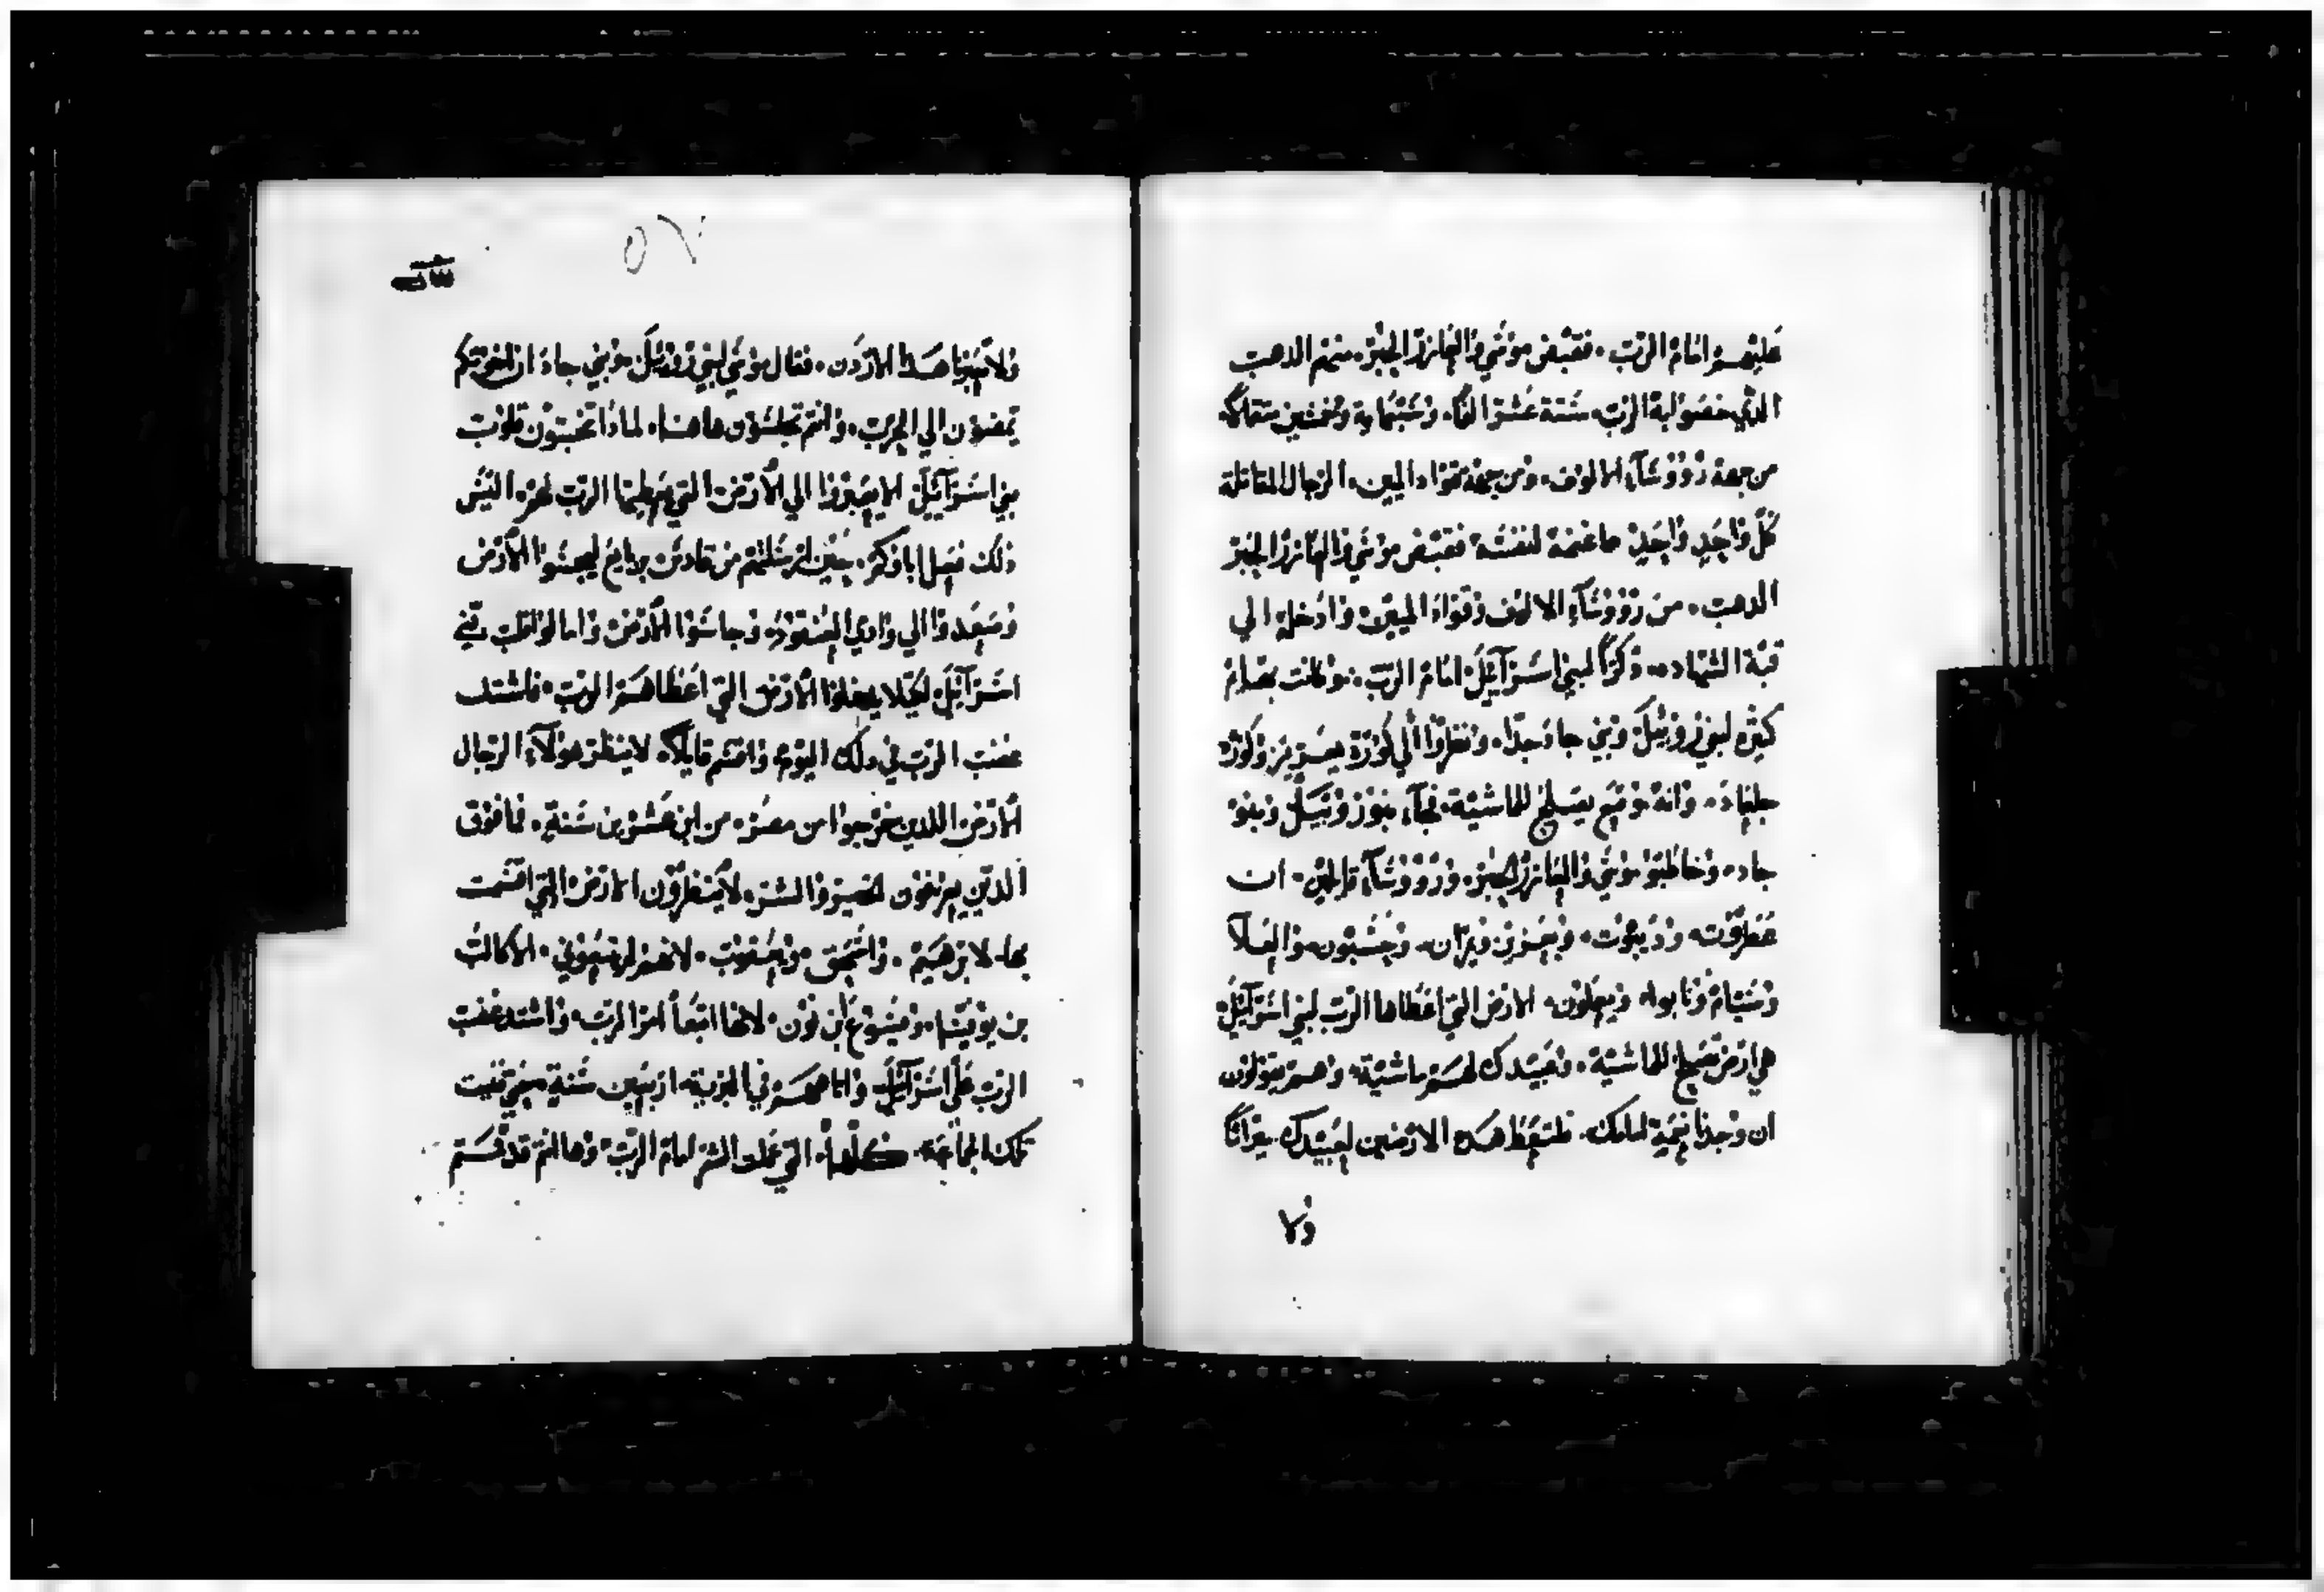 عليهم امام الرب. فقبض موسي والعازر الحبر. منهم الدهب
الذي خصوا لبة الرب ستة عشر الفا. وسبعماية وخمسين متقالا.
من جهة رووسآء الالوف. ومن جهة قواد الميين. الرجال المقاتلة
كل واحد واحد ما غنمة لنفسة فقبض موسي والعازر الحبر
الدهب. من رووسآء الالوف وقواد الميين وادخلة الي
قبة الشهاده. ذكرا لبني اسرآئيل امام الرب. وكانت بهايم
كثيره لبني روبيل وبني جاد جدا. ونظروا الي كورة يعزير وكورة
جلعاد. وانة موضع يصلح للماشية. فجآء بنو روبيل وبنو
جاد. وخاطبوا موسي والعازر الحبر. ورووسآء قايلين. ان
عطروت. وديبون. ويعزير ونمران. وحشبون. والعلا
وسيام ونابوا. وبعلون. الارض التي اعطاها الرب لبني اسرآئيل
هي ارض تصلح للماشية. وعبيدك لهم ماشية. وهم يقولون
ان وجدنا نعمة امامك. فلتعط هده الارضين لعبيدك ميراثا
ولا
ولا تعبرنا هدا الاردن. فقال موسي لبني روبيل وبني جاد ان اخوتكم
يمضون الي الحرب. وانتم تجلسون هاهنا. لمادا تخبثون قلوب
بني اسرآئيل الا يعبروا الي الارض التي يعطيها الرب لهم اليس
ذلك فعل اباوكم. حين ارسلتهم من قادس برانيع ليجسوا الارض
وصعدوا الي وادي العنقود. وجاسوا الارض وامالوا قلب بني
اسرآئيل. لكيلا يدخلوا الارض التي اعطاهم الرب. فاشتد
غضب الرب في دلك اليوم. واقسم قايلا. لا ينظر هولآء الرجال
الارض اللدين خرجوا من مصر. من ابن عشرين سنة. فما فوق
الدين يعرفون الخير والشر. لا ينظرون الارض التي اقسمت
بها. لابرهيم. واسحق. ويعقوب. لانهم لم يتبعوني. الا كالب
بن يوفنيا. ويسوع ابن نون. لانهما اتبعا امر الرب. واشتد غضب
الرب علي اسرآئيل واتاههم في البرية. اربعين سنة. حتي فنيت
تلك الجماعة. كلها. التي عملت الشر امام الرب. وها انتم قد قمتم